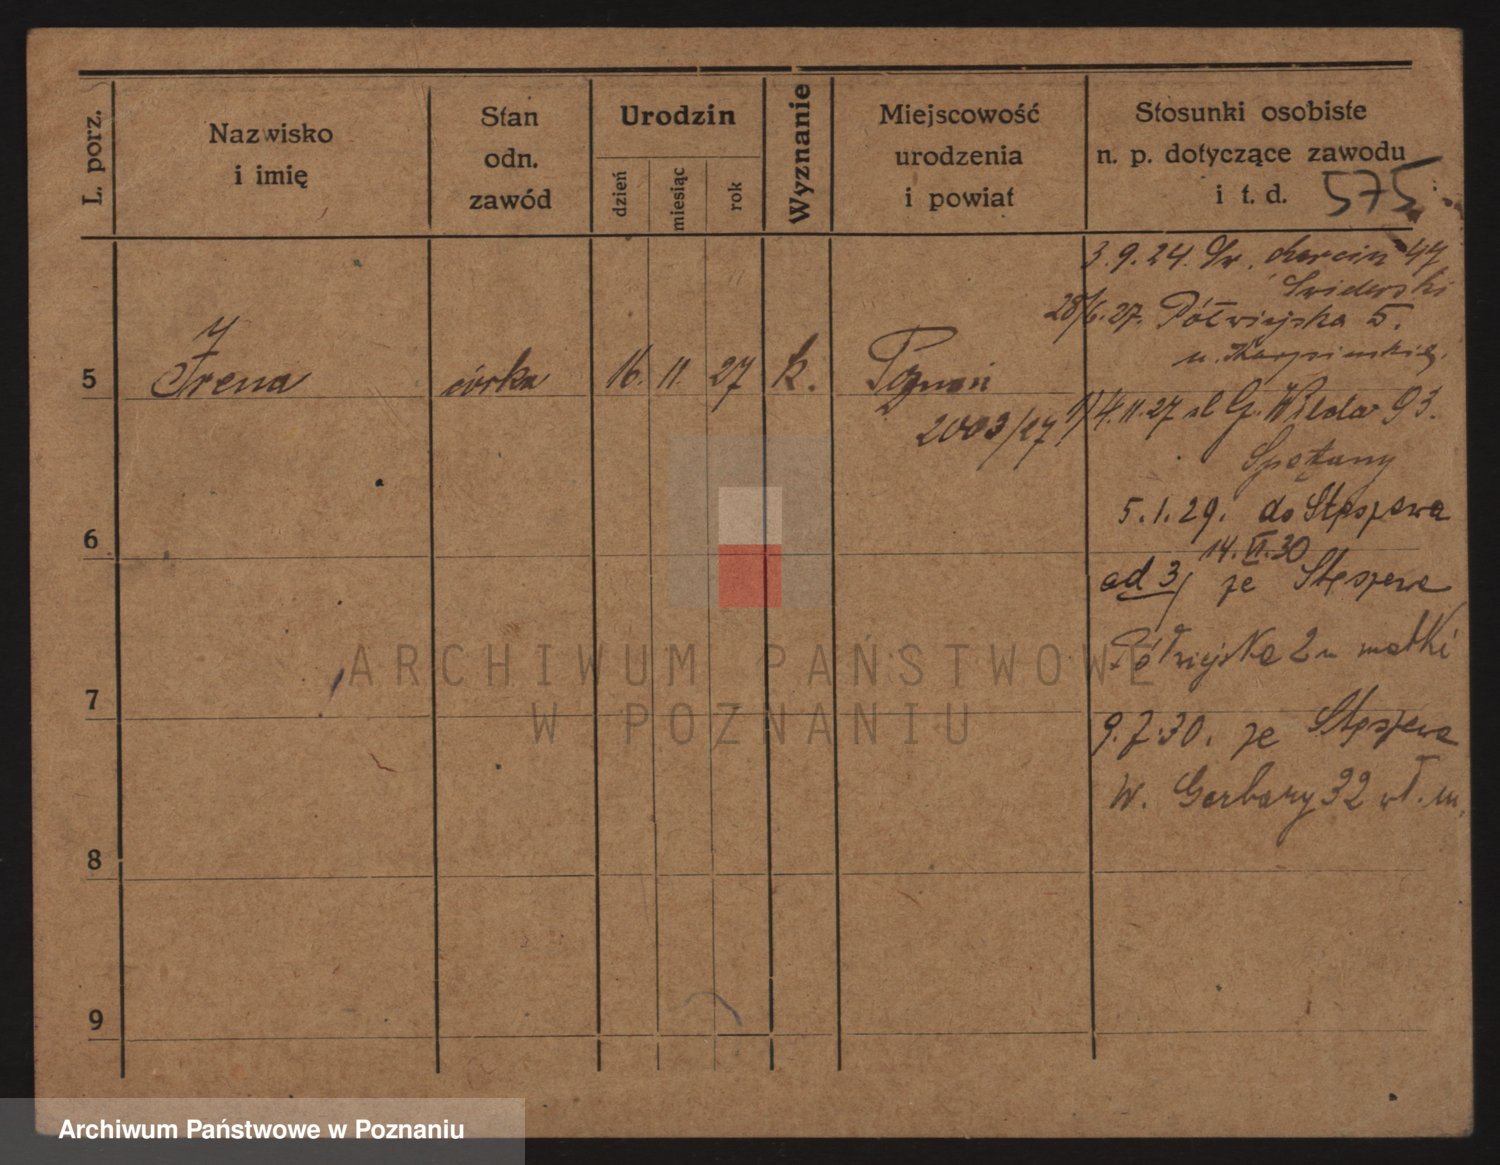 L. porz.
Nazwisko
i imię
Stan
odn.
zawód
Urodzin
dzień
miesiąc
rok
Wyznanie
Miejscowość
urodzenia
i powiat
Stosunki osobiste
n. p. dotyczące zawodu
i t. d.
575
3.9.24. Św. Marcin 47
Świderski
28/6.27. Półwiejska 5.
5
Irena
córka
16.
11.
27
k.
Poznań
2003/27
14.11.27 G. Wilda 93.
5.1.29. do Stęszewa
6
14.VI.30
ad 3/ ze Stęszewa
Półwiejska 2 u matki
7
9.7.30. ze Stęszewa
W. Garbary 32 wł. m.
8
9
ARCHIWUM PAŃSTWOWE
W POZNANIU
Archiwum Państwowe w Poznaniu